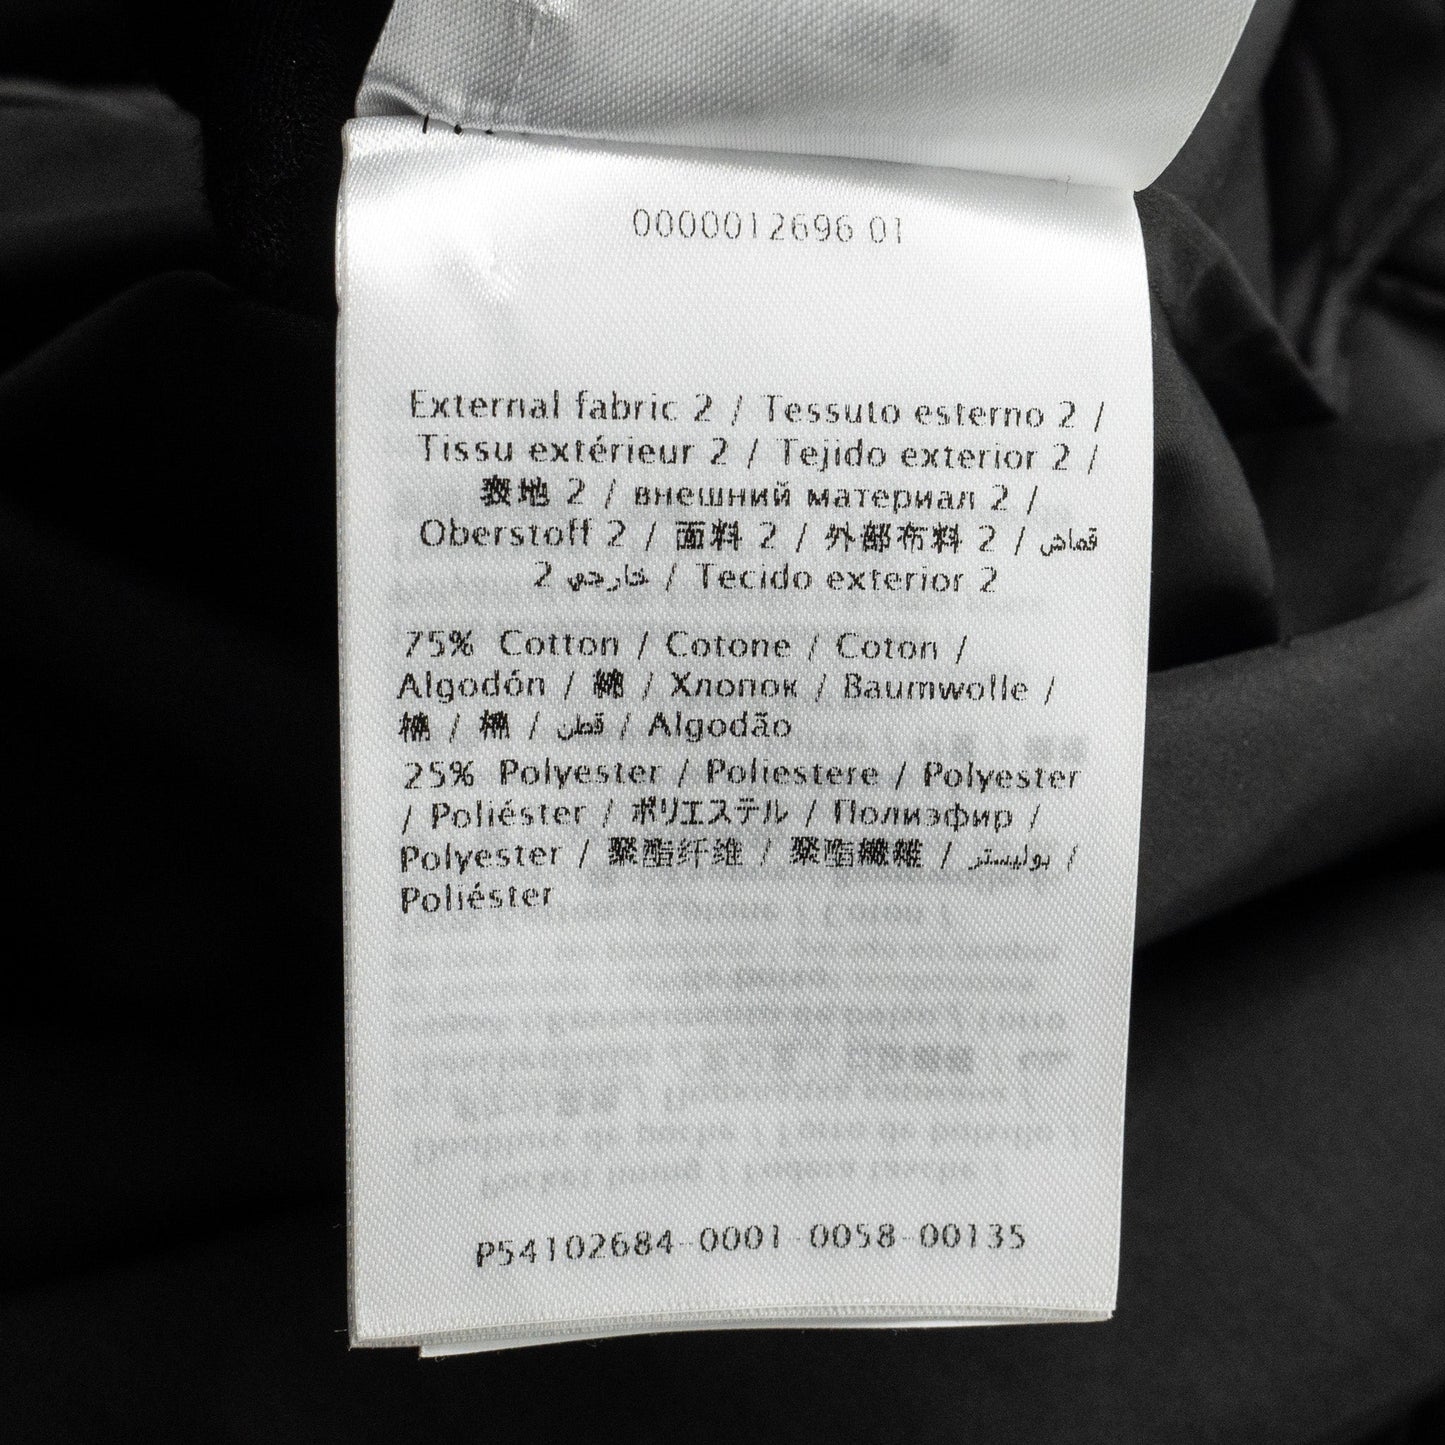 0000012696 01
External fabric 2 / Tessuto esterno 2 /
Tissu extérieur 2 / Tejido exterior 2 /
表地 2 / внешний материал 2 /
Oberstoff 2 / 面料 2 / 外部布料 2 / قماش
خارجي 2 / Tecido exterior 2
75% Cotton / Cotone / Coton /
Algodón / 綿 / Хлопок / Baumwolle /
棉 / 棉 / قطن / Algodão
25% Polyester / Poliestere / Polyester
/ Poliéster / ポリエステル / Полиэфир /
Polyester / 聚酯纤维 / 聚酯纖維 / بوليستر /
Poliéster
P54102684-0001-0058-00135